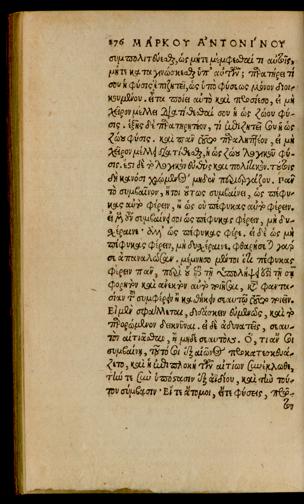 176 ΜΑΡΚΟΥ ΑΝΤΟΝΙΝΟΥ
συμπολιτεύεσθαι, ὡς μήτι μέμφεσθαί τι αὐτοῖς,
μήτι καταγινώσκεσθαι ὑπ' αὐτῶν· Παρατήρει τί
σου ἡ φύσις ἐπιζητεῖ, ὡς ὑπὸ φύσεως μόνον διοι-
κουμένου. εἶτα ποίει αὐτὸ καὶ προσίεσο, εἰ μὴ
χεῖρον μέλλει διατίθεσθαί σου ἡ ὡς ζώου φύ-
σις. ἑξῆς δὲ παρατηρητέον, τί ἐπιζητεῖ σου ἡ ὡς
ζώου φύσις. καὶ πᾶν τοῦτο παραληπτέον, εἰ μὴ
χεῖρον μέλλει διατίθεσθαι ἡ ὡς ζώου λογικοῦ φύ-
σις. ἔστι δὲ τὸ λογικὸν εὐθὺς καὶ πολιτικόν. τούτοις
δὴ κανόσι χρώμενος μηδὲν περιεργάζου. Πᾶν
τὸ συμβαῖνον, ἤτοι οὕτως συμβαίνει, ὡς πέφυ-
κας αὐτὸ φέρειν, ἢ ὡς οὐ πέφυκας αὐτὸ φέρειν.
εἰ μὲν οὖν συμβαίνει σοι ὡς πέφυκας φέρειν, μὴ δυ-
χέραινε· ἀλλ' ὡς πέφυκας φέρε. εἰ δὲ ὡς μὴ
πέφυκας φέρειν, μὴ δυχέραινε, φθαρήσεται γάρ
σε ἀπαναλῶσαν. μέμνησο μέντοι ὅτι πέφυκας
φέρειν πᾶν, περὶ οὗ ἐπὶ τῇ ὑπολήψει ἐστὶ τῇ σῇ
φορητὸν καὶ ἀνεκτὸν αὐτὸ ποιῆσαι, κατὰ φαντα-
σίαν τοῦ συμφέρειν ἢ καθήκειν σεαυτῷ τοῦτο ποιεῖν.
Εἰ μὲν σφάλλεται, διδάσκειν εὐμενῶς, καὶ τὸ
παρορώμενον δεικνύναι. εἰ δὲ ἀδυνατεῖς, σεαυ-
τὸν αἰτιᾶσθαι, ἢ μηδὲ σεαυτόν. Ὅ, τι ἄν σοι
συμβαίνῃ, τοῦτό σοι ἐξ αἰῶνος προκατεσκευά-
ζετο, καὶ ἡ ἐπιπλοκὴ τῶν αἰτίων συνέκλωθε,
τήν τε σὴν ὑπόστασιν ἐξ ἀιδίου, καὶ τὴν τού-
του σύμβασιν· Εἴτε ἄτομοι, εἴτε φύσεις, πρῶ-